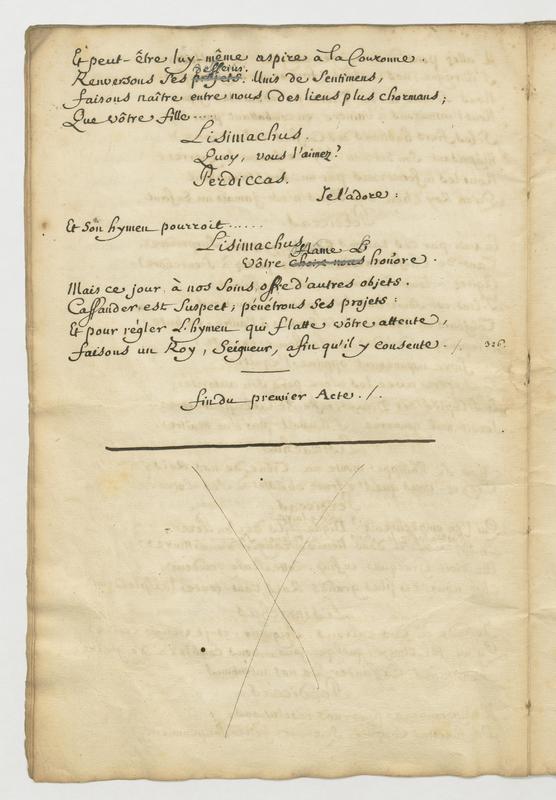 Et peut-être luy-même aspire à la Couronne.
desseins.
Renversons ses projets. Unis de Sentimens,
faisons naître entre nous des liens plus charmans;
Que vôtre fille.....
Lisimachus.
Quoy, vous l'aimez?
Perdiccas.
Je l'adore:
Et Son hymen pourroit......
Lisimachus.
flame L'
Vôtre Choix nous honore.
Mais ce jour à nos Soins offre d'autres objets.
Cassander est Suspect; pénétrons Ses projets:
Et pour régler L'hymen qui flatte vôtre attente,
faisons un Roy, Seigneur, afin qu'il y consente. /. 326.
fin du premier Acte. /.